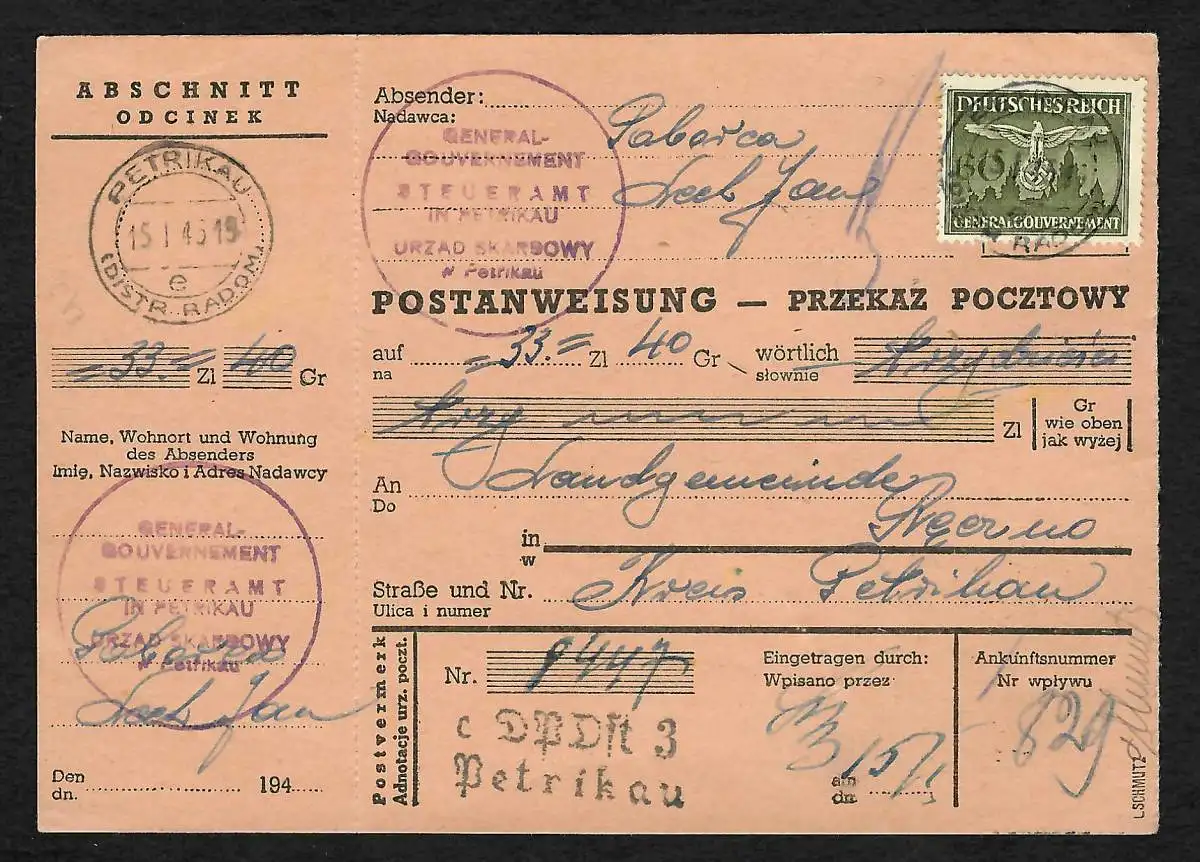 ABSCHNITT
ODCINEK
PETRIKAU
15.I.43 19
e
(DISTR. RADOM)
=33.= Zl 40 Gr
Name, Wohnort und Wohnung
des Absenders
Imię, Nazwisko i Adres Nadawcy
GENERAL-
GOUVERNEMENT
STEUERAMT
IN PETRIKAU
URZĄD SKARBOWY
w Petrikau
Poborca
Jan
Den
dn. 194
Absender:
Nadawca:
GENERAL-
GOUVERNEMENT
STEUERAMT
IN PETRIKAU
URZĄD SKARBOWY
w Petrikau
Poborca
Jan
DEUTSCHES REICH
GENERALGOUVERNEMENT
POSTANWEISUNG — PRZEKAZ POCZTOWY
auf =33.= Zl 40 Gr wörtlich
na słownie
trzydzieści
trzy Zl
Gr
wie oben
jak wyżej
An Landgemeinde
Do
in Ręczno
w
Straße und Nr. Kreis Petrikau
Ulica i numer
Postvermerk
Adnotacje urz. poczt.
Nr. 9447
c DPDst 3
Petrikau
Eingetragen durch:
Wpisano przez
15/I
am
dn.
Ankunftsnummer
Nr wpływu
829
L.SCHMUTZ